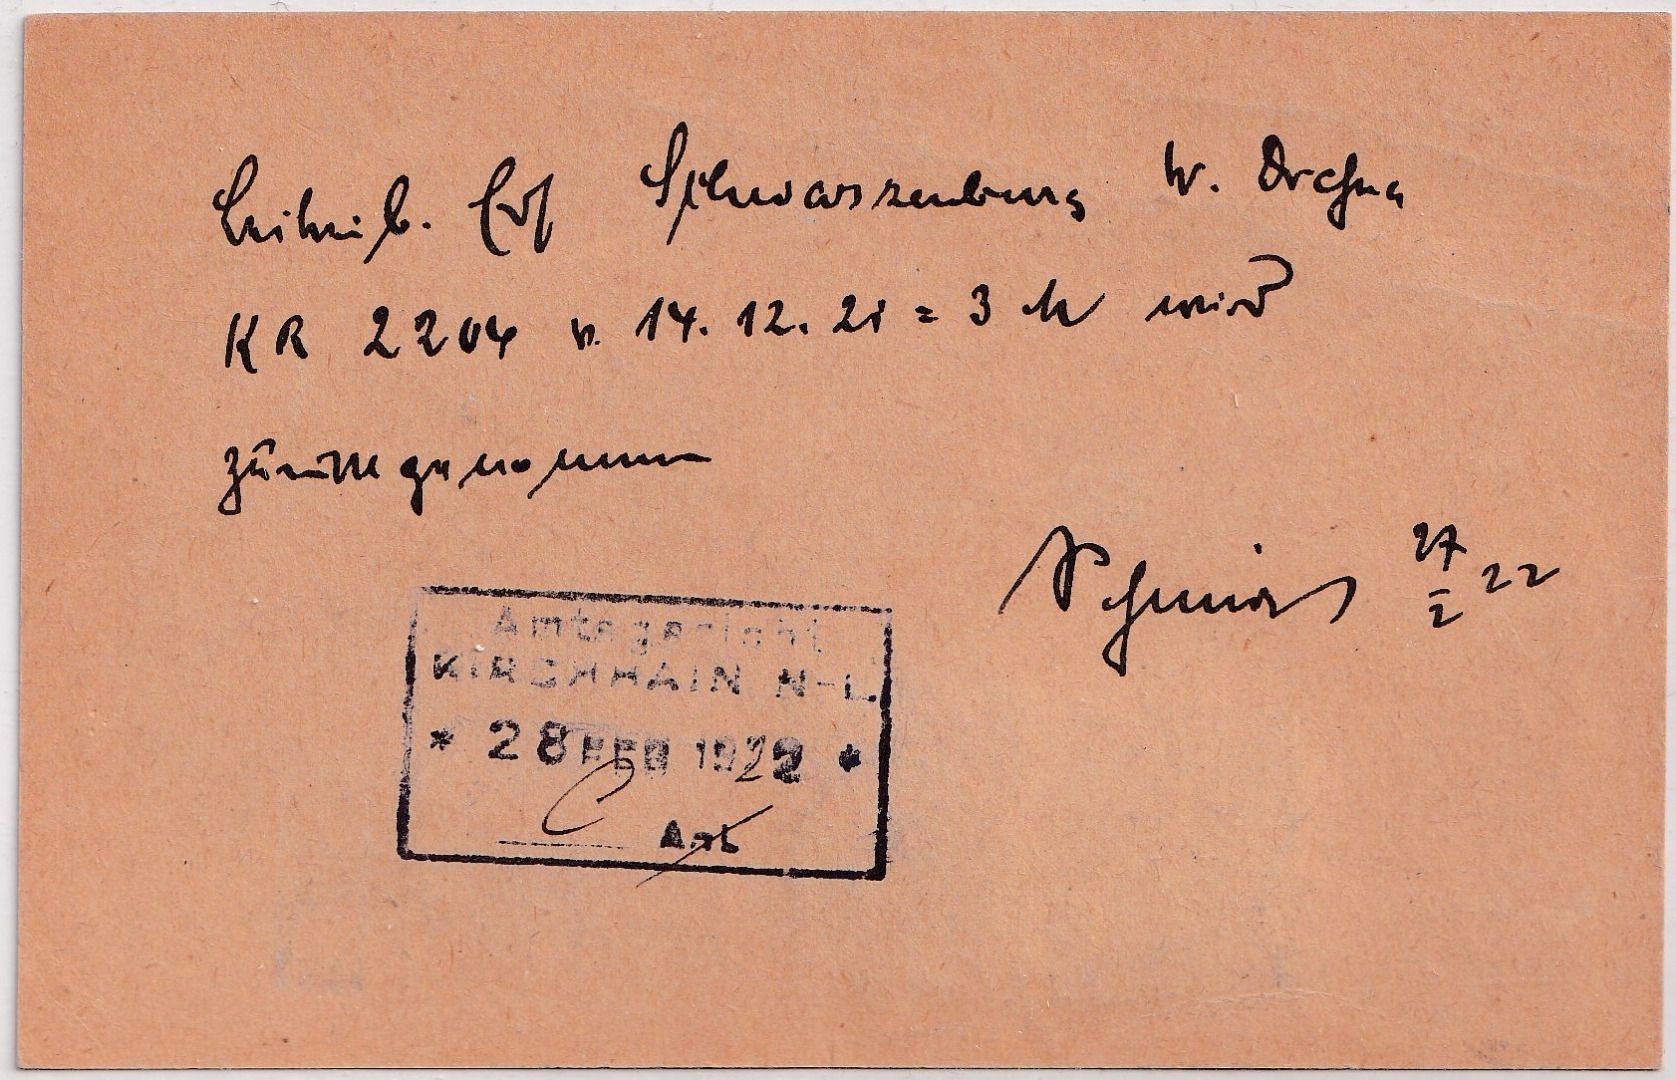 Beitreib. Erf Schwarzenburg W. Drehna
KR 2204 v. 14.12.21 = 3 M wird
zurückgenommen
27
2 22
Amtsgericht
KIRCHHAIN N-L.
* 28 FEB 1922 *
Anl